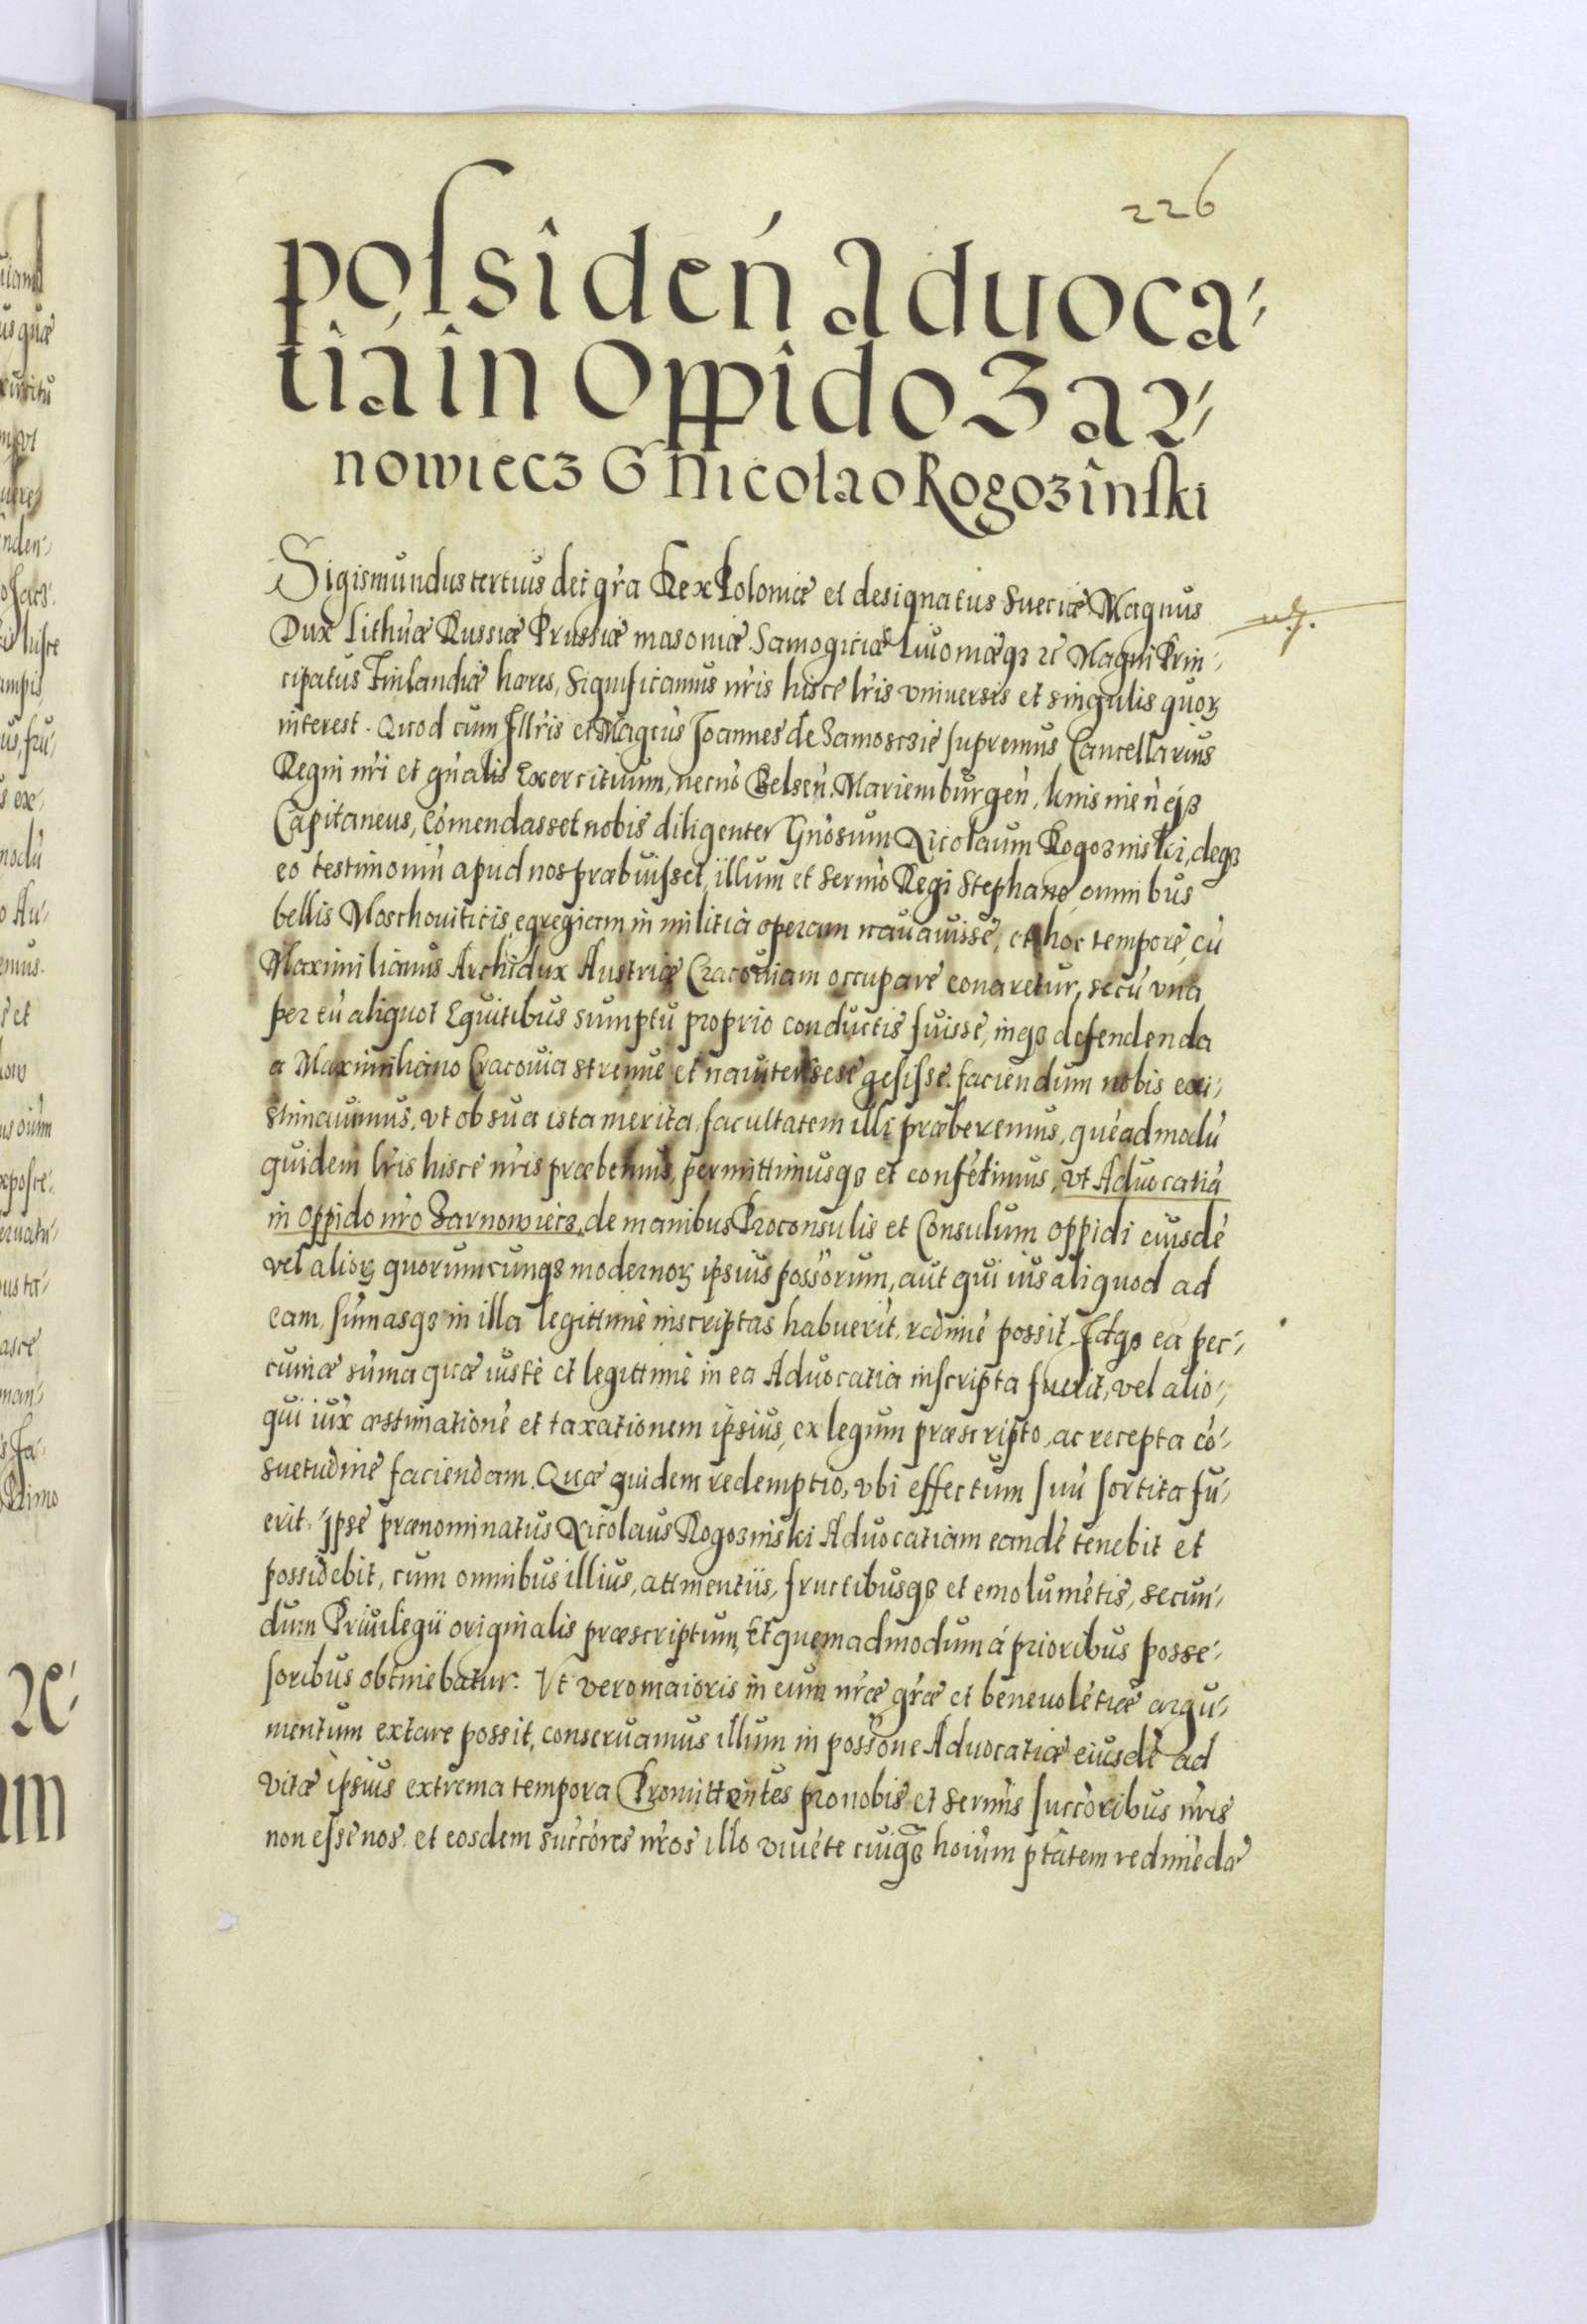 226
possideń Aduoca-
tiā in Oppido Zar-
nowiecz G Nicolao Rogozinski
Sigismundus tertius dei gr̄a Rex Poloniæ et designatus Sueciæ Magnus
Dux Lithuæ Russiæ Prussiæ masoviæ Samogitiæ Liuoniæq3 zē Magni Prin-
cipatus Finlandiæ hæres, Significamus nr̄is hisce lr̄is vniuersis et singulis quoꝝ
interest. Quod cum Illr̄is et Magcūs Joannes de Zamosczie supremus Cancellarius
Regni nr̄i et gn̄alis Exercituum, necnō Belseń. Mariemburgeń, knisnień eq3
Capitaneus, cōmendasset nobis diligenter Gn̄osum Nicolaum Rogozinski, deq3
eo testimoniū apud nos præbuisset, illum et Sermō Regi Stephano, omnibus
bellis Moschouiticis, egregiam in militia operam nauauisse, et hoc tempore, cū
Maximilianus Archidux Austriæ Cracouiam occupare conaretur, secū vna
per eū aliquot Equitibus sumptu proprio conductis fuisse, inq3 defendenda
a Maximiliano Cracouia strenue et nauiter sese gesisse. faciendum nobis exi-
stimauimus, vt ob sua ista merita, facultatem illi præberemus, quēadmodū
quidem lr̄is hisce nr̄is præbemus, permittimusq3 et consētimus, vt Aduocatiā
in Oppido nr̄o Zarnowiecz, de manibus Proconsulis et Consulum oppidi eiusdē
vel alioꝝ quorumcunq3 modernoꝝ ipsius poss̄orum, aut qui ius aliquod ad
eam, sūmasq3 in illa legittimè inscriptas habuerīt, redimē possit. Idq3 ea pec-
cuniæ sūma quæ iustè et legittimè in ea Aduocatia inscripta fuerit, vel alio-
qui iux̄ æstimationē et taxationem ipsius, ex legum præscripto, ac recepta cō-
suetudine faciendam. Quæ quidem redemptio, vbi effectum suū sortita fu-
erit. ipse prænominatus Nicolaus Rogozinski Aduocatiam eandē tenebit et
possidebit, cum omnibus illius, attinentiis, fructibusq3 et emolumētis, secun-
dum Priuilegii originalis præscriptum, Et quemadmodum á prioribus posse-
soribus obtinebatur. Vt vero maioris in eum nr̄æ gr̄æ et beneuolētiæ argu-
mentum extare possit, conseruamus illum in poss̄one Aduocatiæ eiusdē ad
vitæ ipsius extrema tempora Promittentes pro nobis et Sermīs succōribus nr̄is
non esse nos et eosdem succōres nr̄os illo viuēte cuiq3 hoīum ptātem redimēdæ